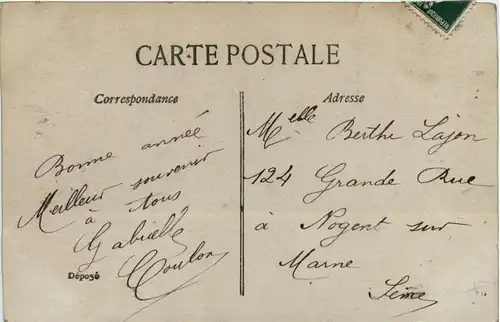 CARTE POSTALE
Correspondance
Bonne année
Meilleur souvenir
à tous
Gabielle
Coulon
Déposé
Adresse
Melle Berthe Lajon
124 Grande Rue
à Nogent sur
Marne
Seine